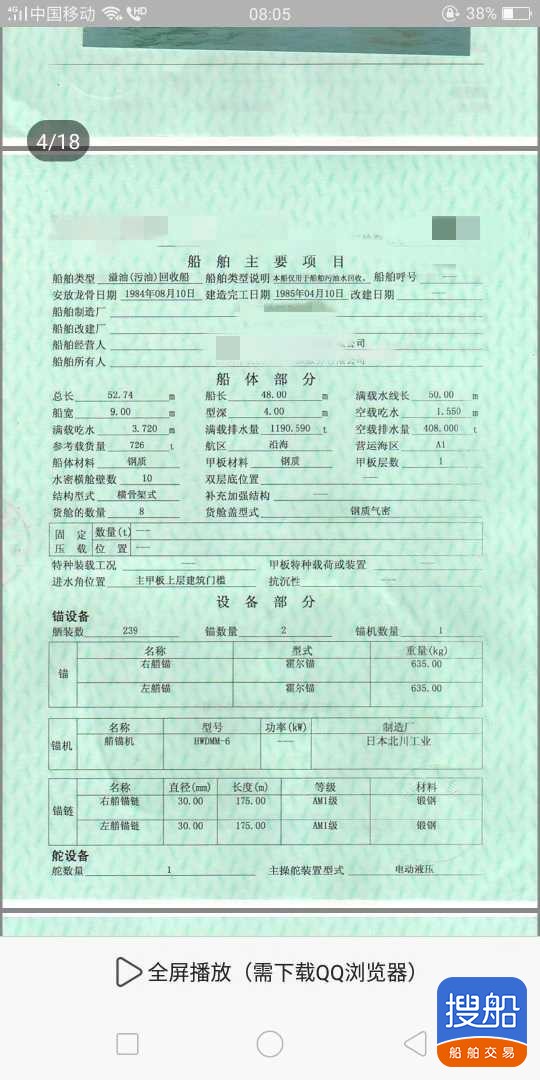 4G 中国移动 HD 08:05 38%
4/18
船舶主要项目
船舶类型 溢油(污油)回收船 船舶类型说明 本船仅用于船舶污油水回收。 船舶呼号 ---
安放龙骨日期 1984年08月10日 建造完工日期 1985年04月10日 改建日期 ---
船舶制造厂
船舶改建厂
船舶经营人 公司
船舶所有人
船体部分
总长 52.74 m 船长 48.00 m 满载水线长 50.00 m
船宽 9.00 m 型深 4.00 m 空载吃水 1.550 m
满载吃水 3.720 m 满载排水量 1190.590 t 空载排水量 408.000 t
参考载货量 726 t 航区 沿海 营运海区 A1
船体材料 钢质 甲板材料 钢质 甲板层数 1
水密横舱壁数 10 双层底位置 ---
结构型式 横骨架式 补充加强结构 ---
货舱的数量 8 货舱盖型式 钢质气密
固定 数量(t) ---
压载 位置 ---
特种装载工况 --- 甲板特种载荷或装置 ---
进水角位置 主甲板上层建筑门槛 抗沉性 ---
设备部分
锚设备
舾装数 239 锚数量 2 锚机数量 1
锚 名称 型式 重量(kg)
右艏锚 霍尔锚 635.00
左艏锚 霍尔锚 635.00
锚机 名称 型号 功率(kW) 制造厂
艏锚机 HWDMM-6 --- 日本北川工业
锚链 名称 直径(mm) 长度(m) 等级 材料
右艏锚链 30.00 175.00 AM1级 锻钢
左艏锚链 30.00 175.00 AM1级 锻钢
舵设备
舵数量 1 主操舵装置型式 电动液压
全屏播放（需下载QQ浏览器）
搜船
船舶交易